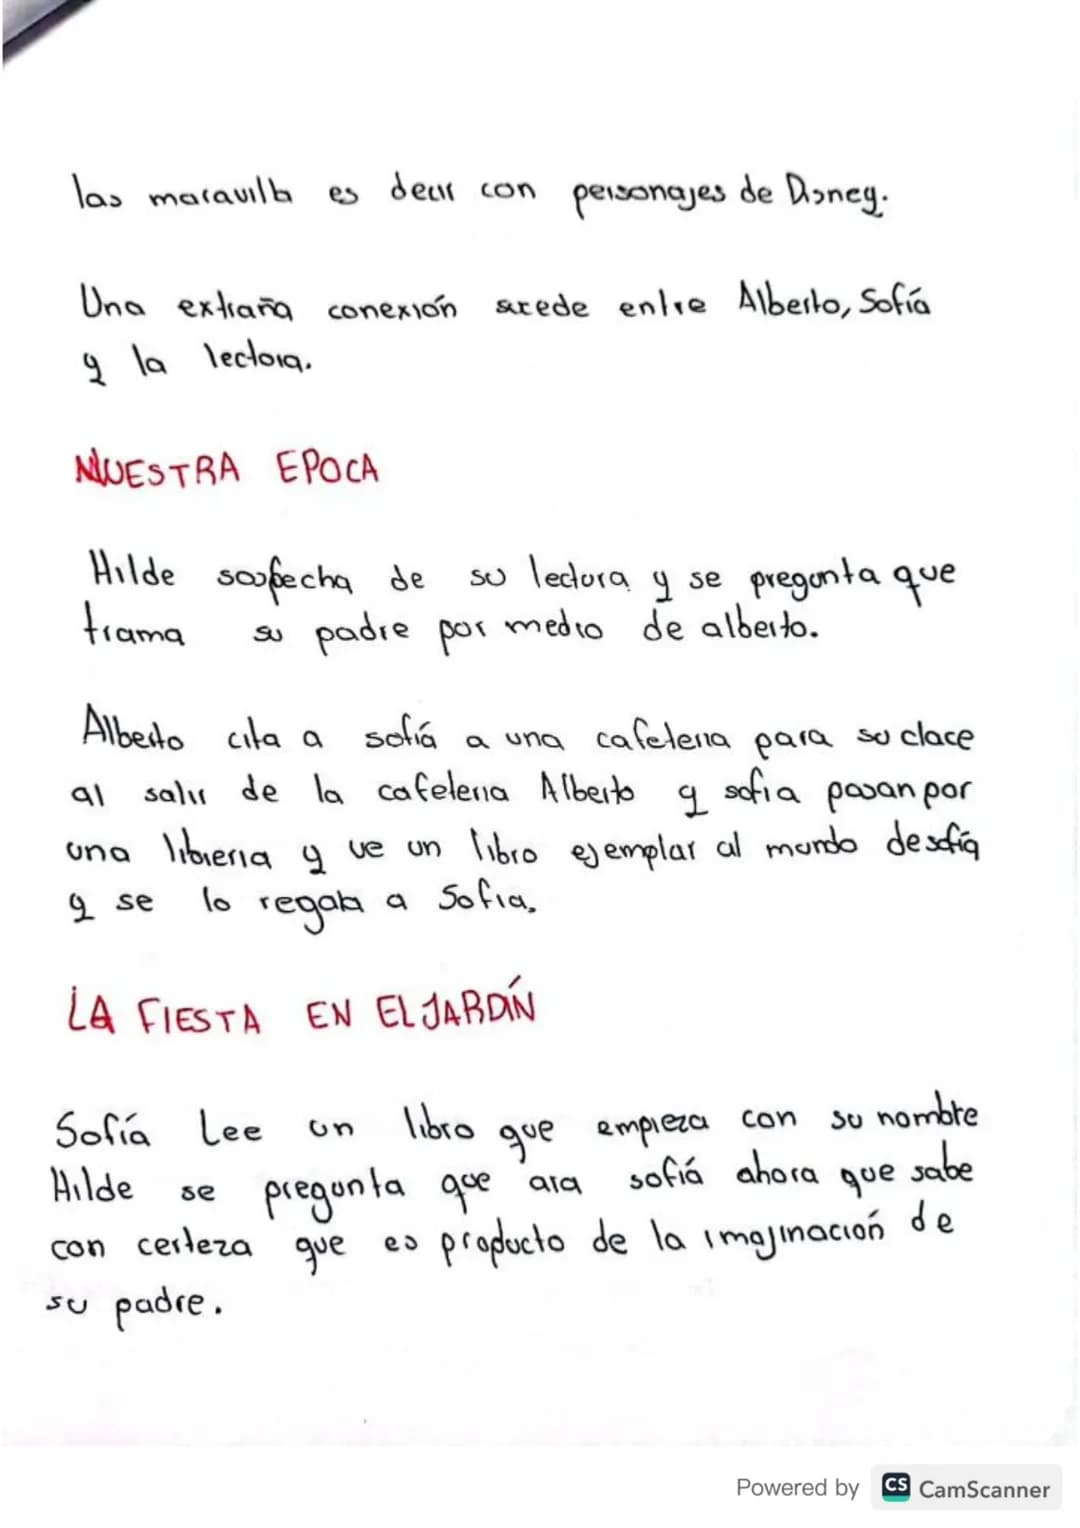 las maravilla es decir con personajes de Disney.
Una extraña conexión sucede entre Alberto, Sofía
y la lectora.
NUESTRA EPOCA
Hilde sospecha de su lectura y se pregunta que
trama su padre por medio de alberto.
Alberto cita a sofiá a una cafeteria para su clace
al salir de la cafeteria Alberto y sofia pasan por
una libreria y ve un libro ejemplar al mundo de sofía
y se lo regala a Sofia.
LA FIESTA EN EL JARDÍN
Sofía Lee un libro que empieza con su nombre
Hilde se pregunta que ara sofiá ahora que sabe
con certeza que es producto de la imajinación de
su padre.
Powered by CS CamScanner